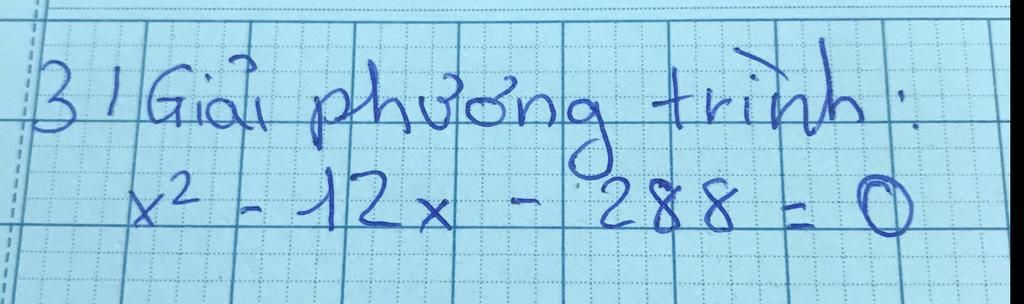 3/ Giải phương trình:
x² - 12x - 288 = 0